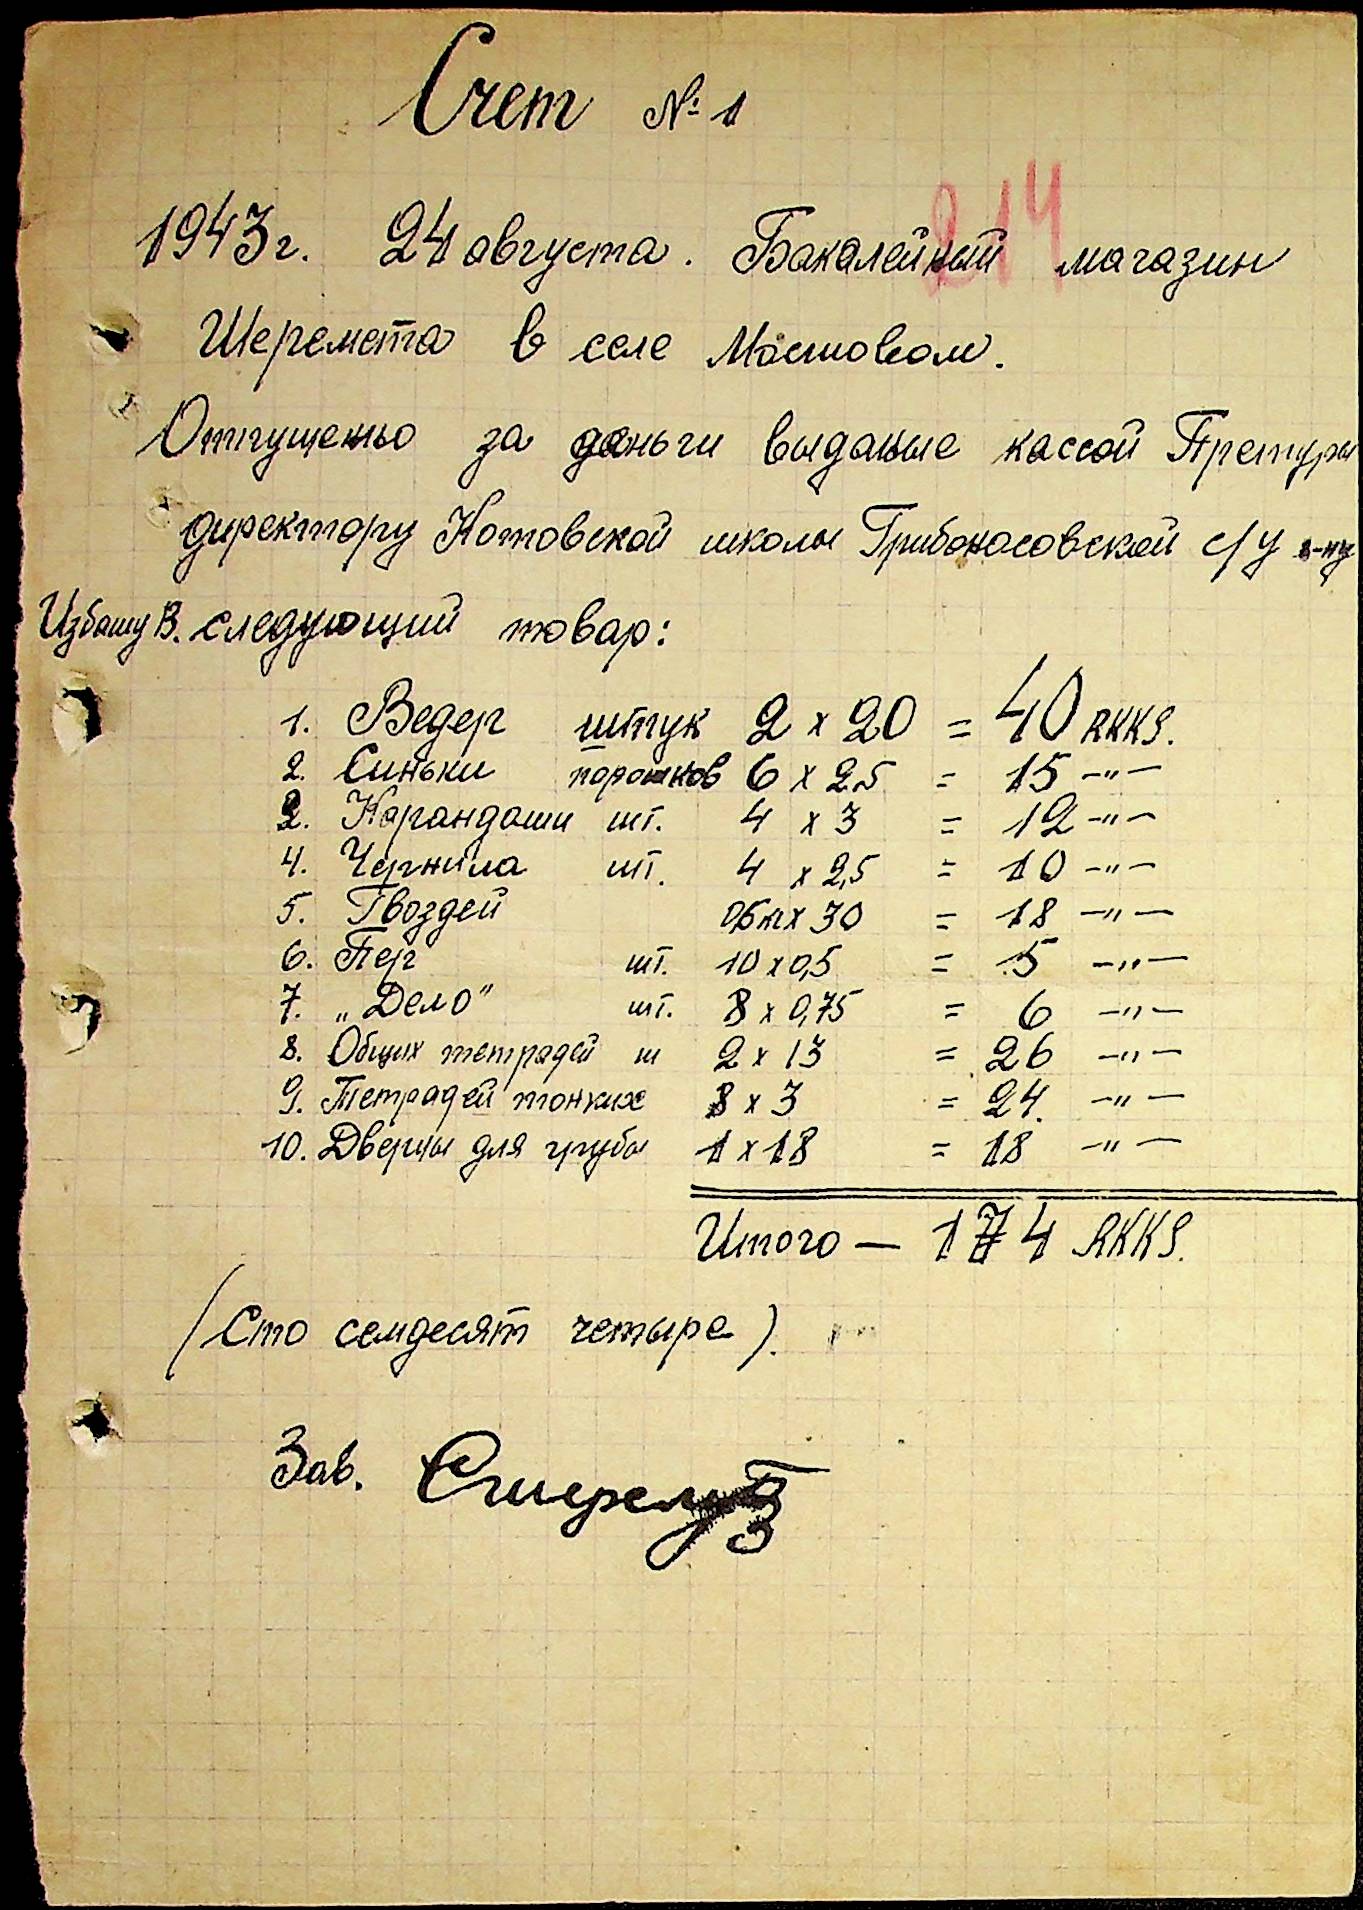 Счет № 1
214
1943г. 24 августа. Бакалейный магазин
Шеремета в селе Мостовом.
Отпущенно за деньги выданые кассой Претуры
директору Котовской школы Грибоносовской с/у г-ну
Избашу В. следующий товар:
1. Ведер штук 2 x 20 = 40 RKKS.
2. Синьки порошков 6 x 2,5 = 15 -"-
2. Карандаши шт. 4 x 3 = 12 -"-
4. Чернила шт. 4 x 2,5 = 10 -"-
5. Гвоздей 0,6 кг x 30 = 18 -"-
6. Пер шт. 10 x 0,5 = 5 -"-
7. „Дело" шт. 8 x 0,75 = 6 -"-
8. Общих тетрадей ш 2 x 13 = 26 -"-
9. Тетрадей тонких 8 x 3 = 24. -"-
10. Дверцы для грубы 1 x 18 = 18 -"-
Итого — 174 RKKS.
(Сто семдесят четыре).
Зав.